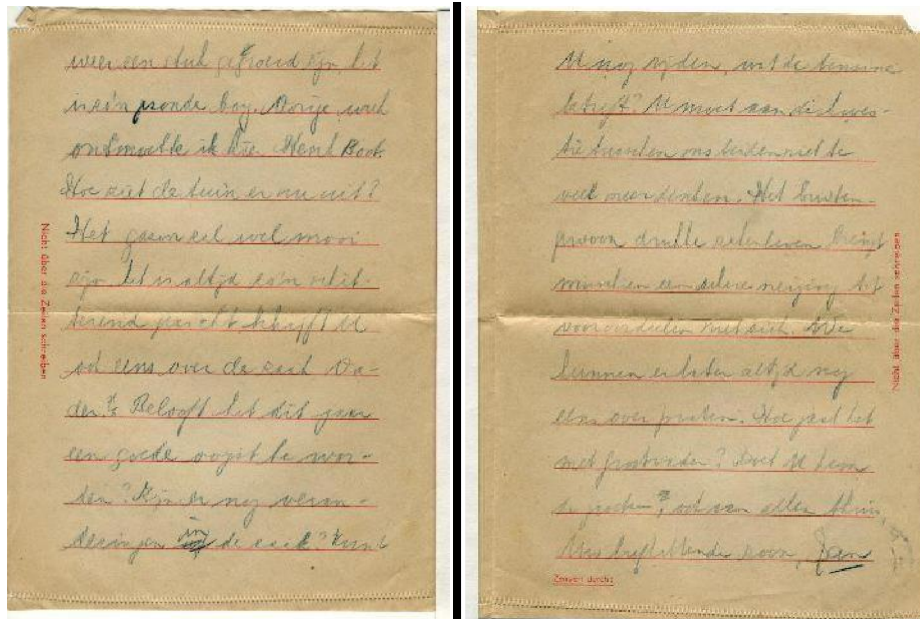 weer een stuk gegroeid zijn, het
is zo'n gezonde boy. Vorige week
ontmoette ik hier Henk Boot.
Hoe ziet de tuin er nu uit?
Het gazon zal wel mooi
zijn het is altijd zo'n schit-
terend gezicht. Schrijft U
ook eens over de zaak Va-
der? Belooft het dit jaar
een goede oogst te wor-
den? Zijn er nog veran-
deringen in de zaak? Kunt
Nicht über die Zeilen schreiben
U nog rijden, wat de benzine
betreft? U moet aan die kwes-
tie tusschen ons beiden niet te
veel meer denken. Het buiten-
gewoon drukke zakenleven brengt
misschien een zekere neiging tot
vooroordeelen met zich. We
kunnen er later altijd nog
eens over praten. Hoe gaat het
met grootvader? Doet U hem
de groeten, ook aan allen thuis,
Uw liefhebbende zoon,
Nicht über die Zeilen schreiben